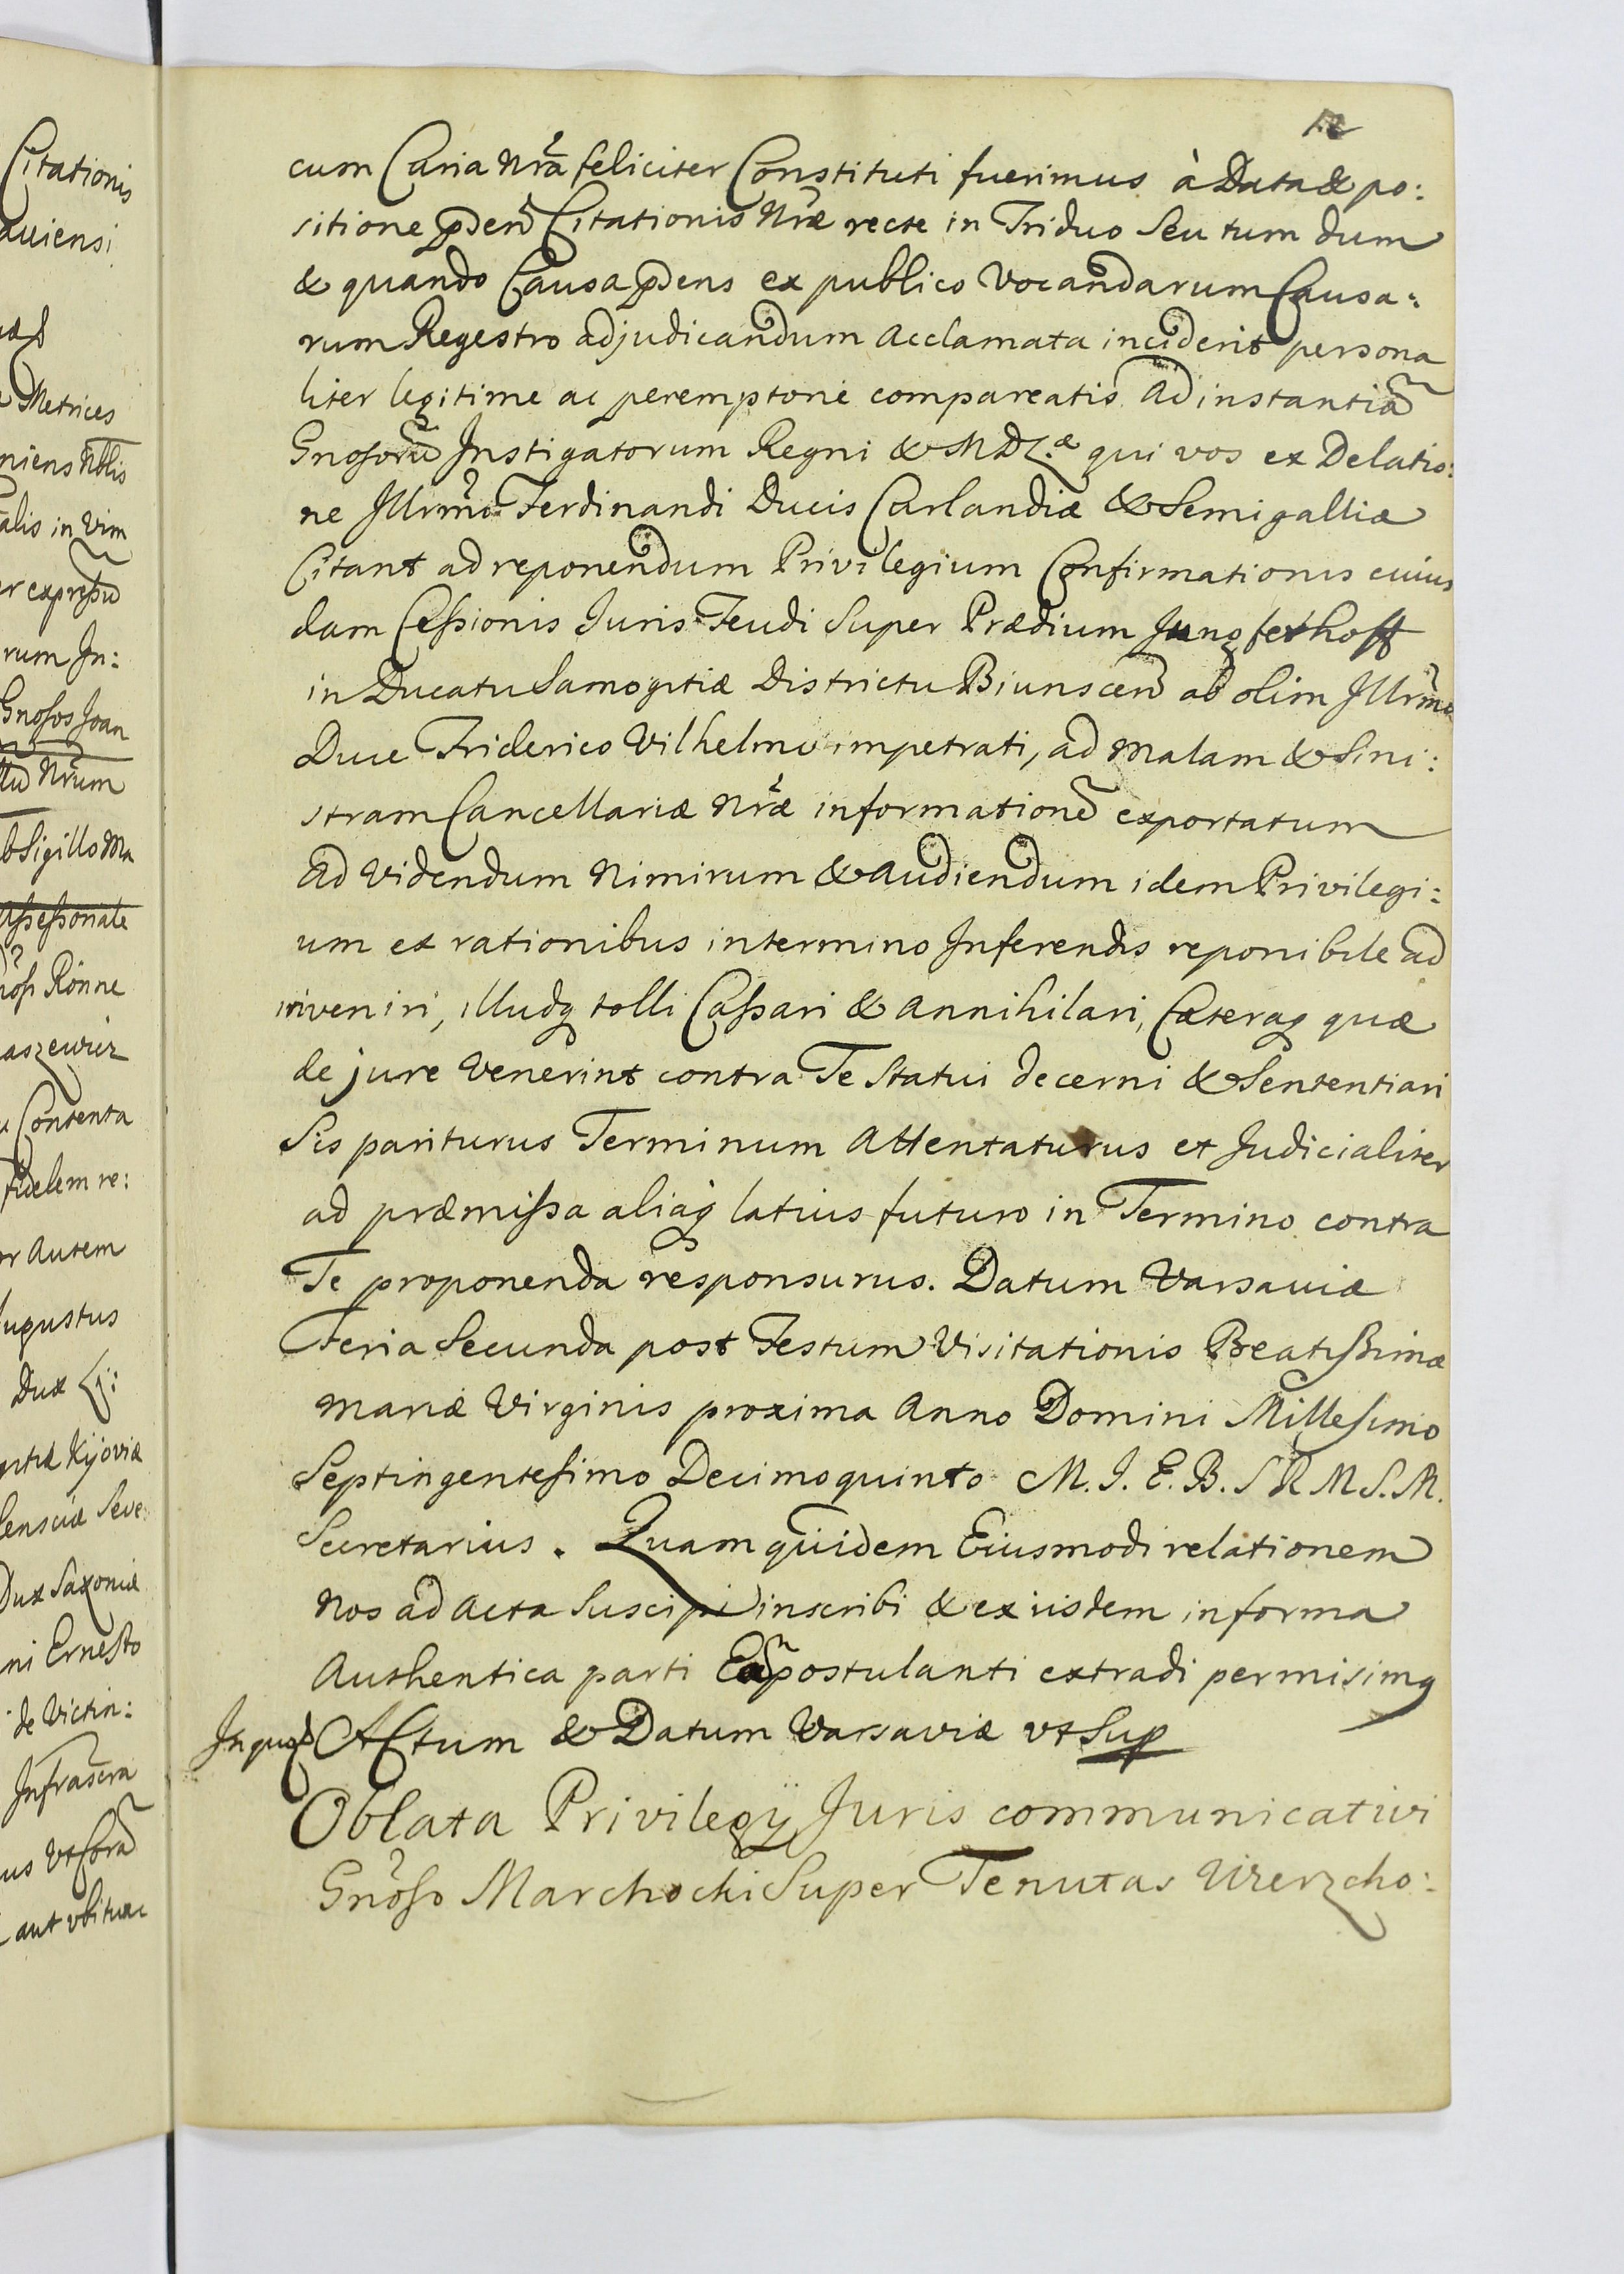 Citationis
auiensi
Metrices
niens Nblis
alis in Vim
er expressū
rum In:
Gnosos Joan
Nrum
b Sigillo Ma
Assessoriale
Rönne
aszewicz
Contenta
fidelem re:
or Autem
Augustus
Dux L:
Kijoviæ
lensciæ Seve:
Dux Saxoniæ
ni Ernesto
de Victin:
Infrascra
aut vbitunc
cum Curia Nrã feliciter Constituti fuerimus à Data & po:
sitione pñden Citationis Nræ recte in Triduo Seu tum dum
& quando Causa pñdens ex publico Vocandarum Causa:
rum Regestro adjudicandum Acclamata inciderit persona
liter legitime ac peremptorie compareatis Ad instantiã
Gnosorũ Instigatorum Regni & M D L.æ qui vos ex Delatio:
ne Illrmi Ferdinandi Ducis Curlandiæ & Semigalliæ
Citant ad reponendum Privilegium Confirmationis cuius
dam Cessionis Juris Feudi Super Prædium Jungferhoff
in Ducatu Samogitiæ Districtu Biunscen ab olim Illrmo
Duce Friderico Vilhelmo impetrati, ad malam & Sini:
stram Cancellariæ Nræ informatione exportatum
Ad Videndum Nimirum & Audiendum idem Privilegi:
um ex rationibus intermino Inferendis reponibile ad
inveniri, illudq tolli Cassari & Annihilari, Cæteraq quæ
de jure Venerint contra Te Statui decerni & Sententiari
Sis pariturus Terminum Attentaturus et Judicialiter
ad præmissa aliaq latius futuro in Termino contra
Te proponenda responsurus. Datum Varsaviæ
Feria Secunda post Festum Visitationis Beatissimæ
Mariæ Virginis proxima Anno Domini Millesimo
Septingentesimo Decimoquinto M. J. E. B. S R M S. M.
Secretarius. Quam quidem Eiusmodi relationem
Nos ad Acta Suscipi inscribi & ex iisdem informa
Authentica parti Eam postulanti extradi permisimq
In quod Actum & Datum Varsaviæ vt Sup
Oblata Privilegÿ Juris communicativi
Gnoso Marchocki Super Tenutas Wierzcho: